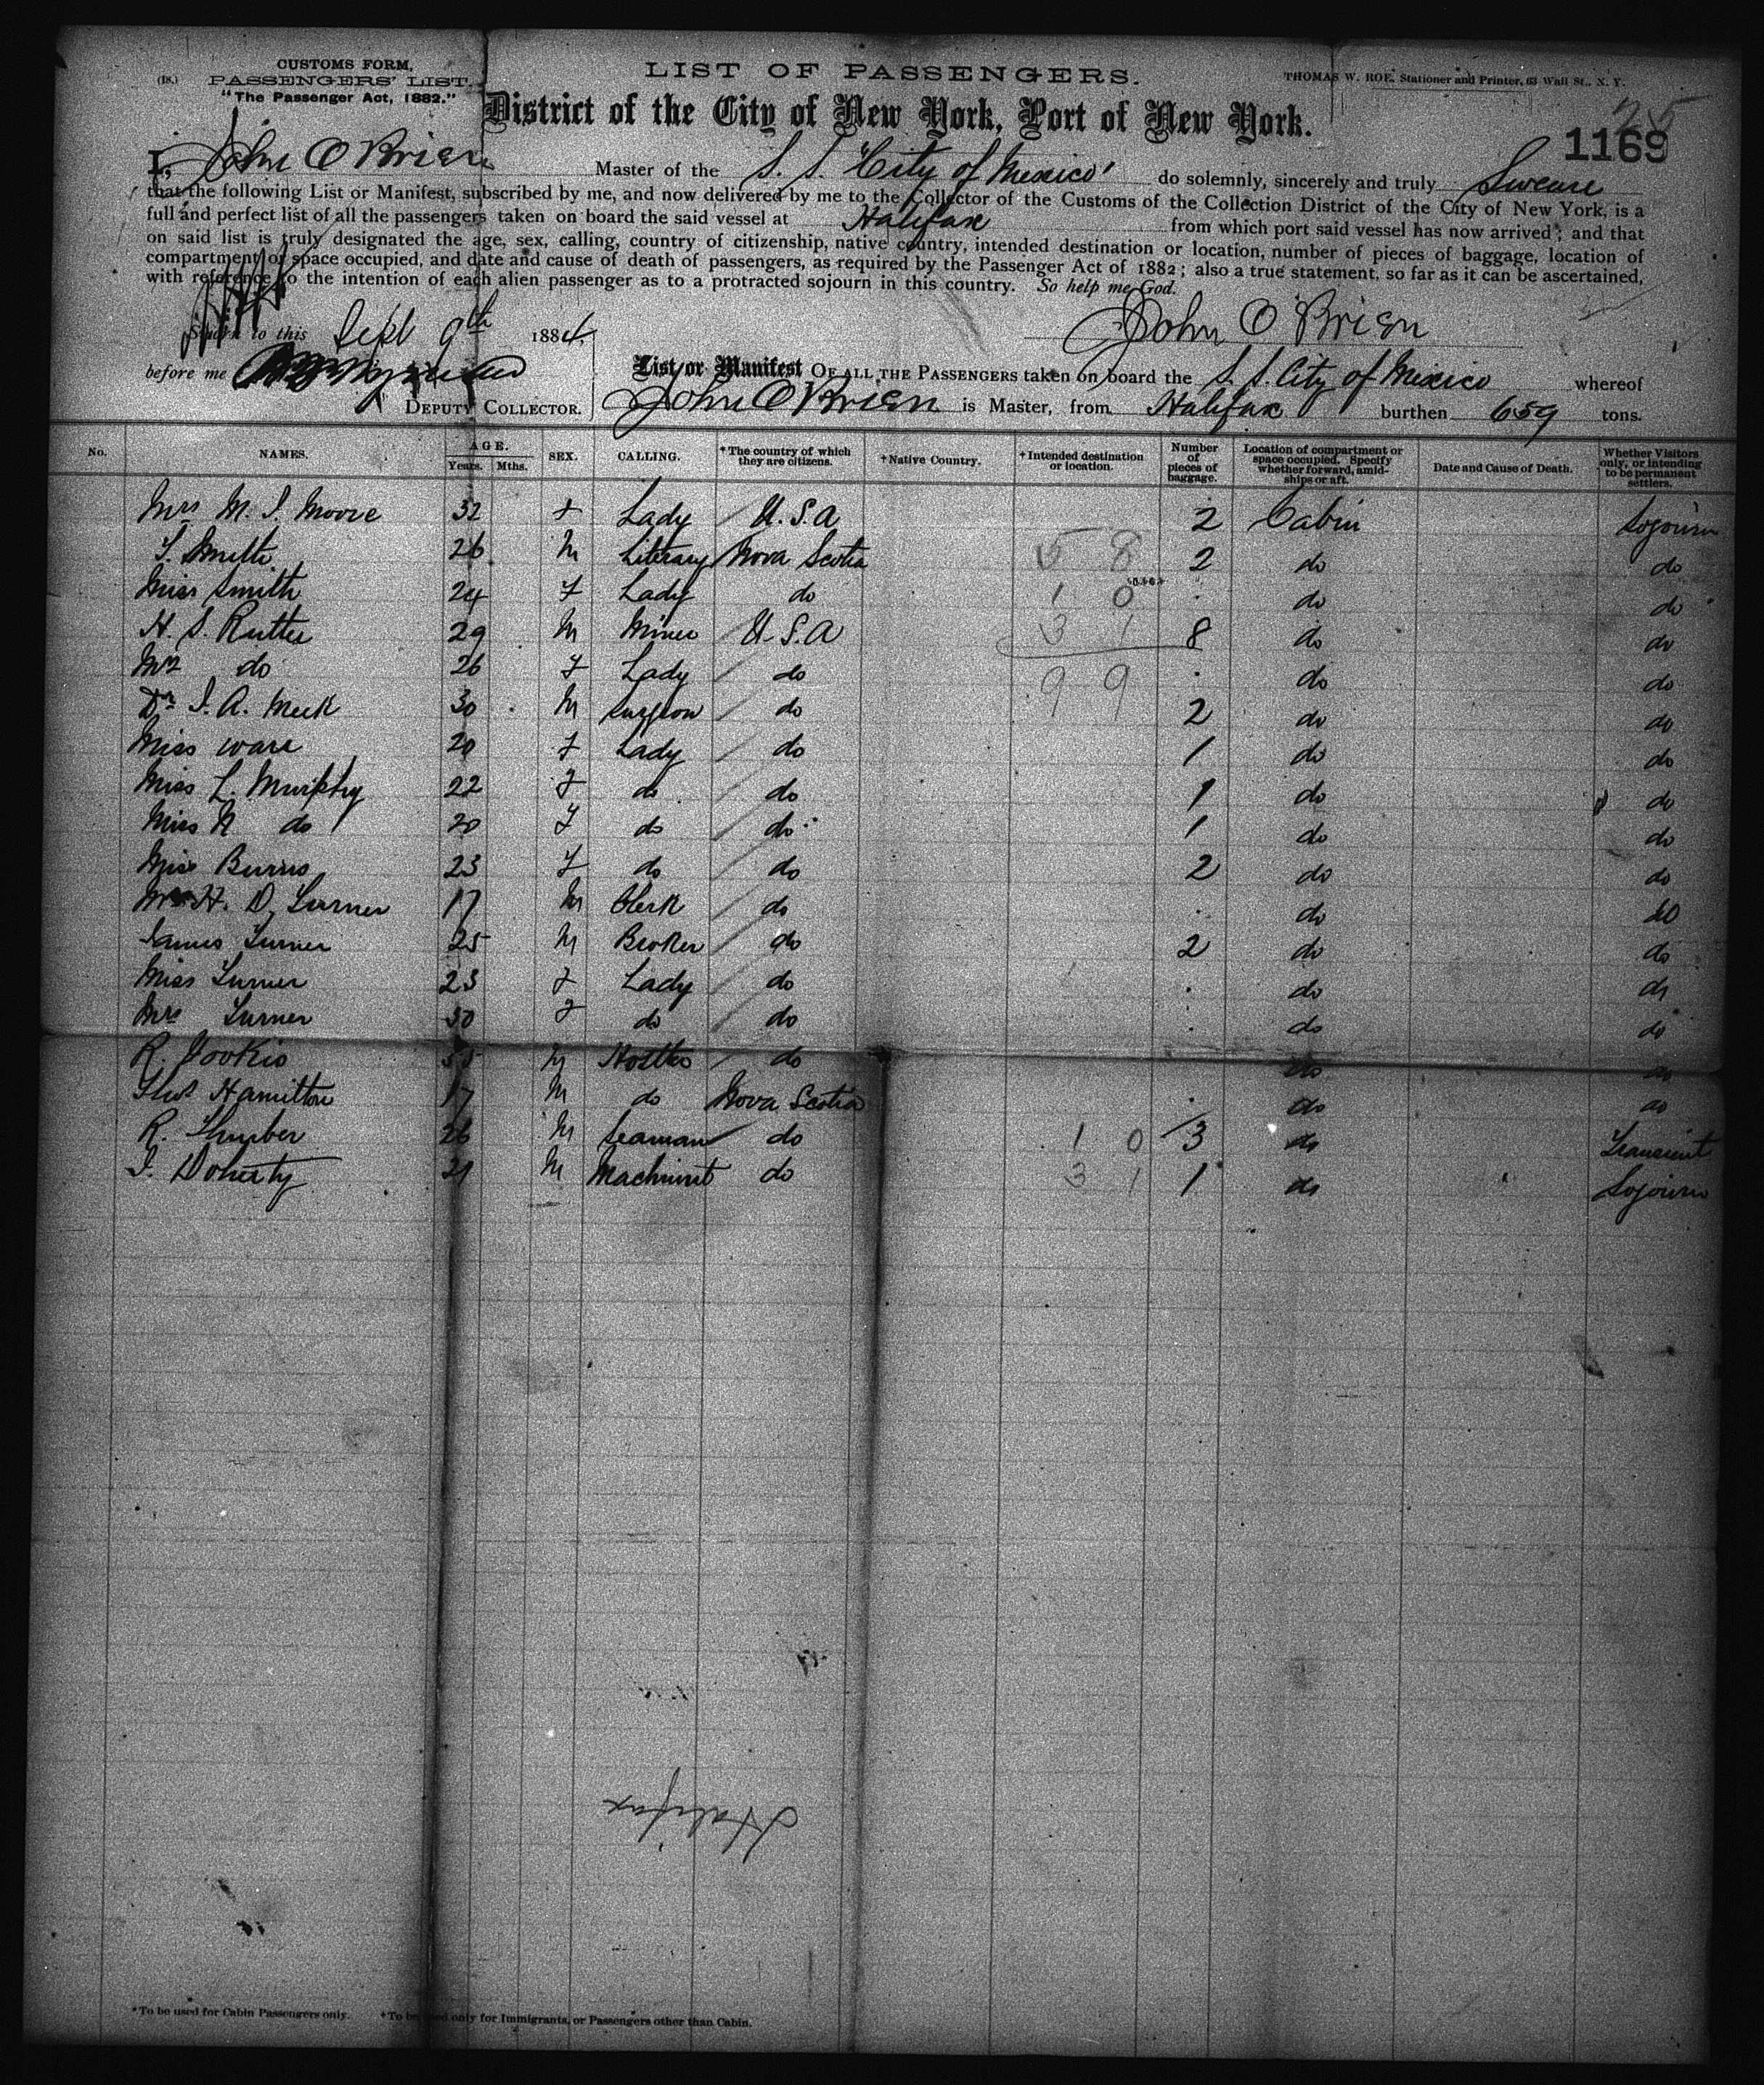 CUSTOMS FORM,
(18.) PASSENGERS' LIST.
"The Passenger Act, 1882."
LIST OF PASSENGERS.
THOMAS W. ROE, Stationer and Printer, 63 Wall St., N. Y.
District of the City of New York, Port of New York.
25
1169
I, John O'Brien Master of the S. S. "City of Mexico" do solemnly, sincerely and truly Sweare
that the following List or Manifest, subscribed by me, and now delivered by me to the Collector of the Customs of the Collection District of the City of New York, is a
full and perfect list of all the passengers taken on board the said vessel at Halifax from which port said vessel has now arrived; and that
on said list is truly designated the age, sex, calling, country of citizenship, native country, intended destination or location, number of pieces of baggage, location of
compartment or space occupied, and date and cause of death of passengers, as required by the Passenger Act of 1882; also a true statement, so far as it can be ascertained,
with reference to the intention of each alien passenger as to a protracted sojourn in this country. So help me God.
Sworn to this Sept 9th 1884, John O'Brien
before me
DEPUTY COLLECTOR.
List or Manifest OF ALL THE PASSENGERS taken on board the S. S. City of Mexico whereof
John O'Brien is Master, from Halifax burthen 659 tons.
No. NAMES. AGE. Years. Mths. SEX. CALLING. *The country of which they are citizens. †Native Country. †Intended destination or location. Number of pieces of baggage. Location of compartment or space occupied. Specify whether forward, amidships or aft. Date and Cause of Death. Whether Visitors only, or intending to be permanent settlers.
Mrs M. J. Moore 32 F Lady U.S.A 2 Cabin Sojourn
T. Smith 26 M Literary Nova Scotia 5 8 2 do do
Miss Smith 24 F Lady do 1 0 do do
H. S. Rutter 29 M Miner U.S.A 3 1 8 do do
Mrs do 26 F Lady do 9 9 do do
Dr J. A. Meek 30 M Surgeon do 2 do do
Miss Ware 20 F Lady do 1 do do
Miss L. Murphy 22 F do do 1 do do
Miss N do 20 F do do 1 do do
Miss Burns 23 F do do 2 do do
H. D. Turner 17 M Clerk do do do
James Turner 25 M Broker do 2 do do
Miss Turner 23 F Lady do do do
Mrs Turner 50 F do do do do
R. 55 M do do do
Hamilton 17 M do Nova Scotia do do
R. Thurber 26 M Seaman do 1 0 3 do Transient
J. Doherty 21 M Machinist do 3 1 1 do Sojourn
Halifax
*To be used for Cabin Passengers only. †To be used only for Immigrants, or Passengers other than Cabin.